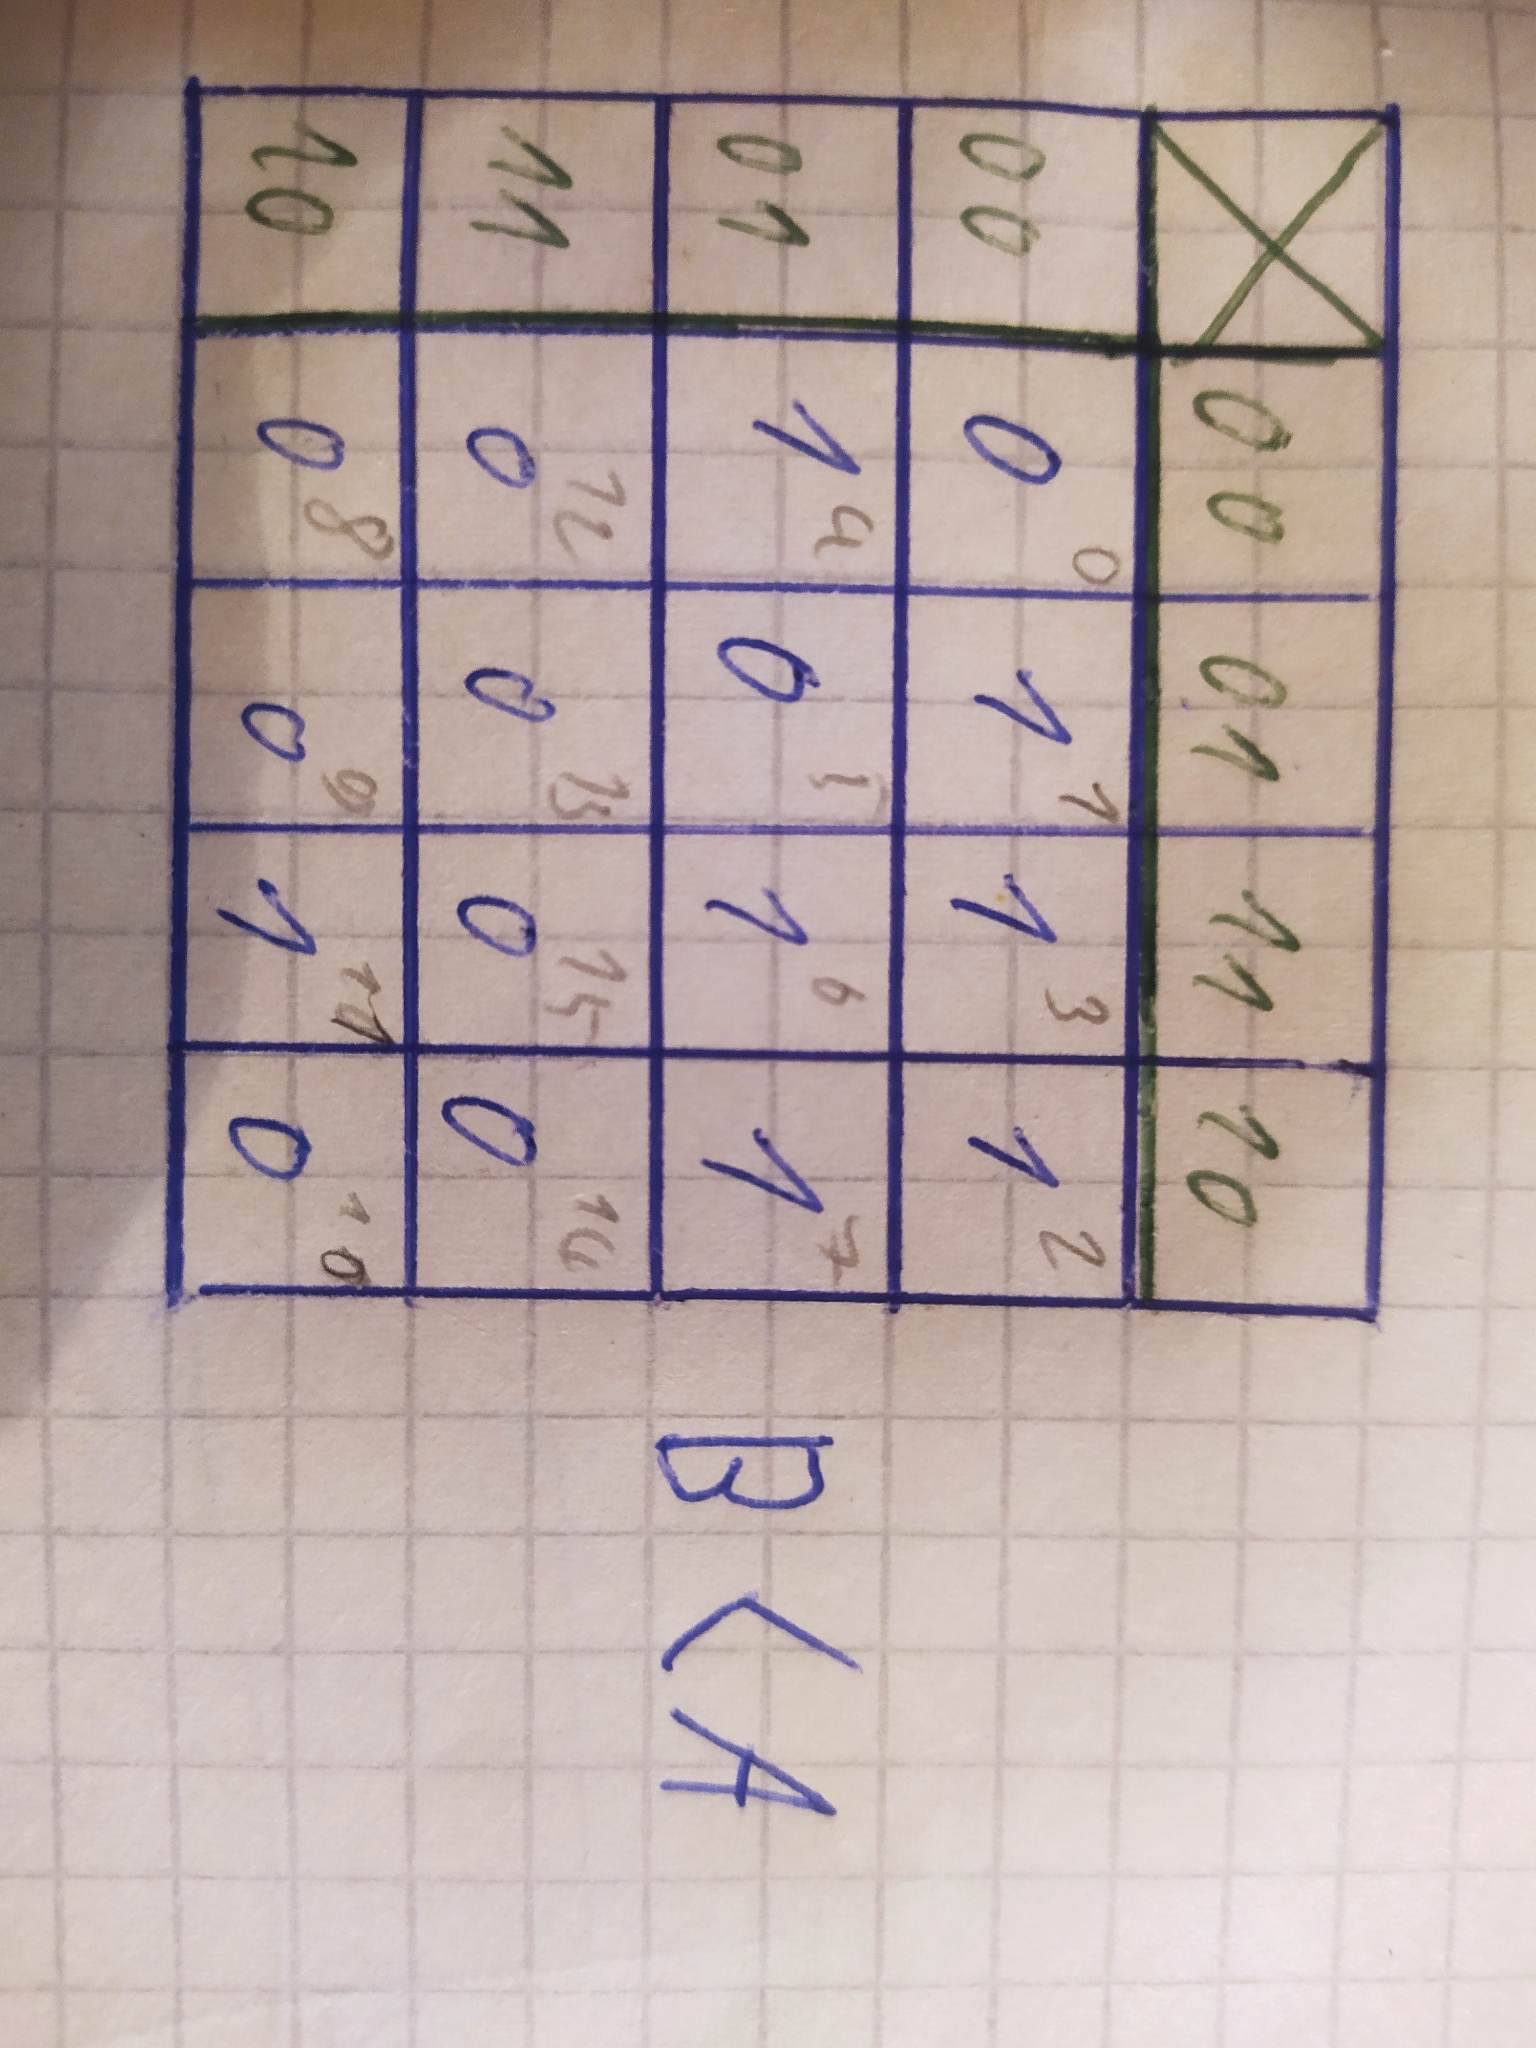 00 01 11 10
00 0 0 1 1 1 3 1 2
01 1 4 0 5 1 6 1 7 B < A
11 0 12 0 13 0 15 0 14
10 0 8 0 9 1 11 0 10